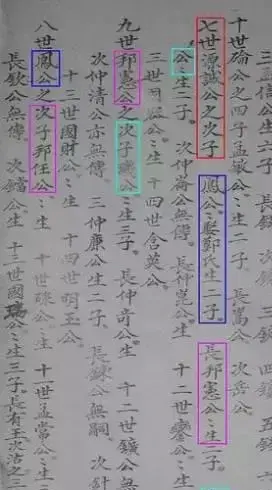 三孟信公生六子 長欽 次鎮 三
十世碖公之四子孟敏公生二子 長嵩公 次岳公
七世源誠公之次子 鳳公〻娶鄭氏生二子 長邦憲公〻生二子
公〻生二子 次仲崙公無傳 長仲崑公生 十二世
三世 公生 十四世含英公
九世邦憲公之次子 公生三子 長仲奇公生 十二世鑛公無
次仲清公亦無傳 三仲廉公生二子 長鍊公無嗣 次針
十三世國財公生 十四世明玉公
八世鳳公之次子邦任公〻生 十世 公生 十一世孟常公生三
長欽公無傳 次鐺公生 十三世國瑞公〻生三子 長有王次